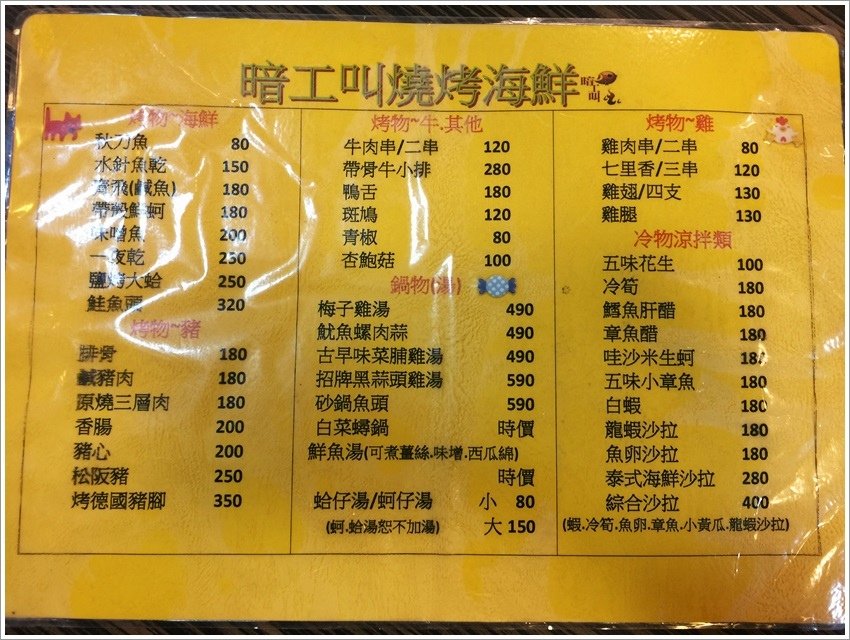 暗工叫燒烤海鮮
暗工叫
烤物~海鮮
秋刀魚 80
水針魚乾 150
齊飛(鹹魚) 180
帶殼鮮蚵 180
味噌魚 200
一夜乾 230
鹽烤大蛤 250
鮭魚頭 320
烤物~豬
排骨 180
鹹豬肉 180
原燒三層肉 180
香腸 200
豬心 200
松阪豬 250
烤德國豬腳 350
烤物~牛.其他
牛肉串/二串 120
帶骨牛小排 280
鴨舌 180
斑鳩 120
青椒 80
杏鮑菇 100
鍋物(湯)
梅子雞湯 490
魷魚螺肉蒜 490
古早味菜脯雞湯 490
招牌黑蒜頭雞湯 590
砂鍋魚頭 590
白菜蟳鍋 時價
鮮魚湯(可煮薑絲.味增.西瓜綿)
時價
蛤仔湯/蚵仔湯 小 80
(蚵.蛤湯恕不加湯) 大 150
烤物~雞
雞肉串/二串 80
七里香/三串 120
雞翅/四支 130
雞腿 130
冷物涼拌類
五味花生 100
冷筍 180
鱈魚肝醋 180
章魚醋 180
哇沙米生蚵 18
五味小章魚 180
白蝦 180
龍蝦沙拉 180
魚卵沙拉 180
泰式海鮮沙拉 280
綜合沙拉 400
(蝦.冷筍.魚卵.章魚.小黃瓜.龍蝦沙拉)